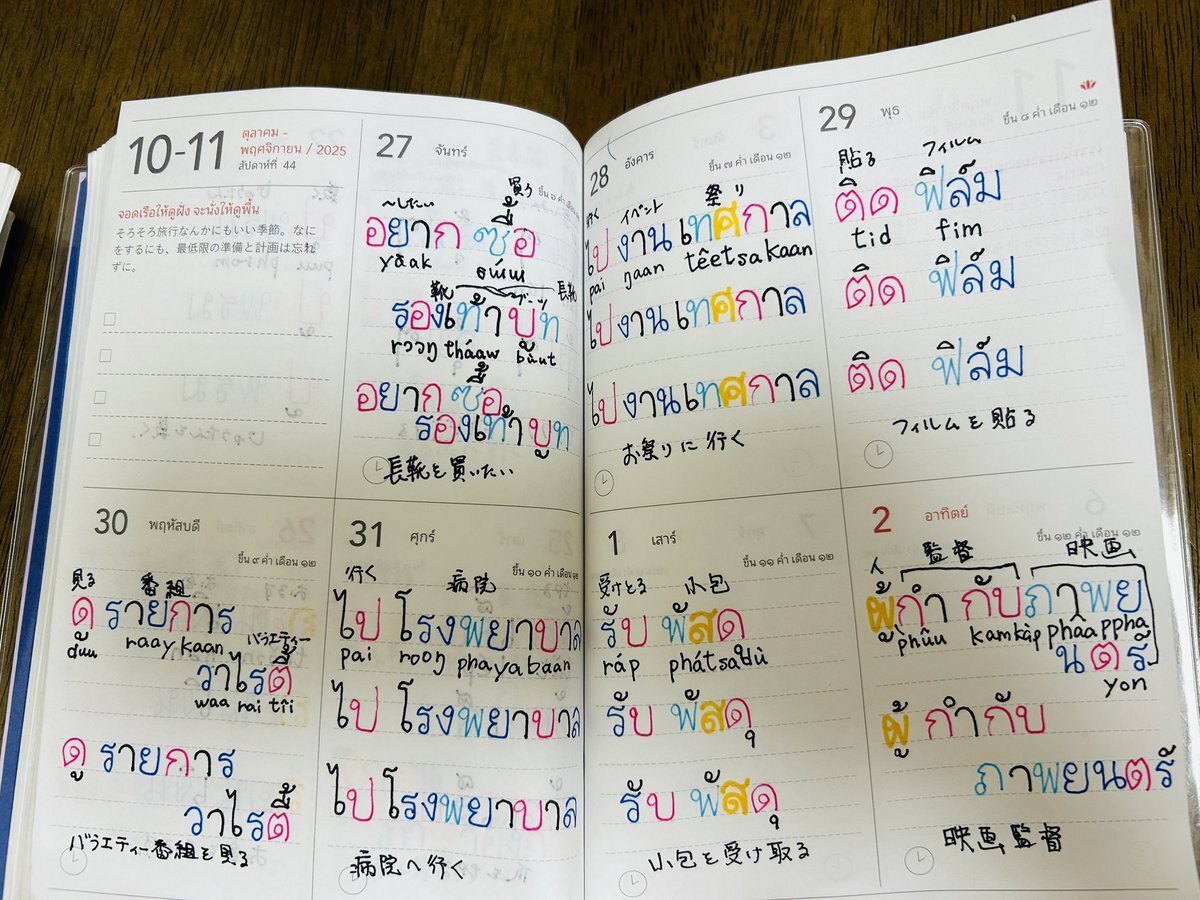 10-11
ตุลาคม -
พฤศจิกายน / 2025
สัปดาห์ที่ 44
จอดเรือให้ดูฝั่ง จะนั่งให้ดูพื้น
そろそろ旅行なんかにもいい季節。なに
をするにも、最低限の準備と計画は忘れ
ずに。
27 จันทร์
ขึ้น ๖ ค่ำ เดือน ๑๒
〜したい 買う
อยาก ซื้อ
yàak
靴 ブーツ 長靴
รองเท้า บูท
rɔɔŋ tháaw bùut
อยาก ซื้อ
รองเท้า บูท
長靴を買いたい
28 อังคาร
ขึ้น ๗ ค่ำ เดือน ๑๒
行く イベント 祭り
ไป งาน เทศกาล
pai ŋaan têetsakaan
ไป งาน เทศกาล
ไป งาน เทศกาล
お祭りに行く
29 พุธ
ขึ้น ๘ ค่ำ เดือน ๑๒
貼る フィルム
ติด ฟิล์ม
tid fim
ติด ฟิล์ม
ติด ฟิล์ม
フィルムを貼る
30 พฤหัสบดี
ขึ้น ๙ ค่ำ เดือน ๑๒
見る 番組
ดู รายการ
duu raaykaan
バラエティー
วาไรตี้
waa rai tîi
ดู รายการ
วาไรตี้
バラエティー番組を見る
31 ศุกร์
ขึ้น ๑๐ ค่ำ เดือน ๑๒
行く 病院
ไป โรงพยาบาล
pai rooŋ phayabaan
ไป โรงพยาบาล
ไป โรงพยาบาล
病院へ行く
1 เสาร์
ขึ้น ๑๑ ค่ำ เดือน ๑๒
受けとる 小包
รับ พัสดุ
ráp phátsadù
รับ พัสดุ
รับ พัสดุ
小包を受け取る
2 อาทิตย์
ขึ้น ๑๒ ค่ำ เดือน ๑๒
人 監督 映画
ผู้กำกับภาพย
phûu kamkàp phâappha
นตร์
yon
ผู้กำกับ
ภาพยนตร์
映画監督